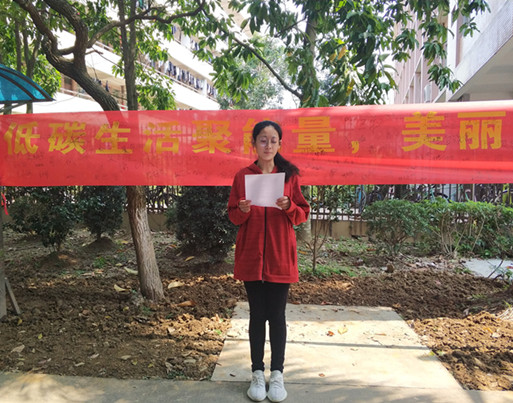 低碳生活聚能量，美丽